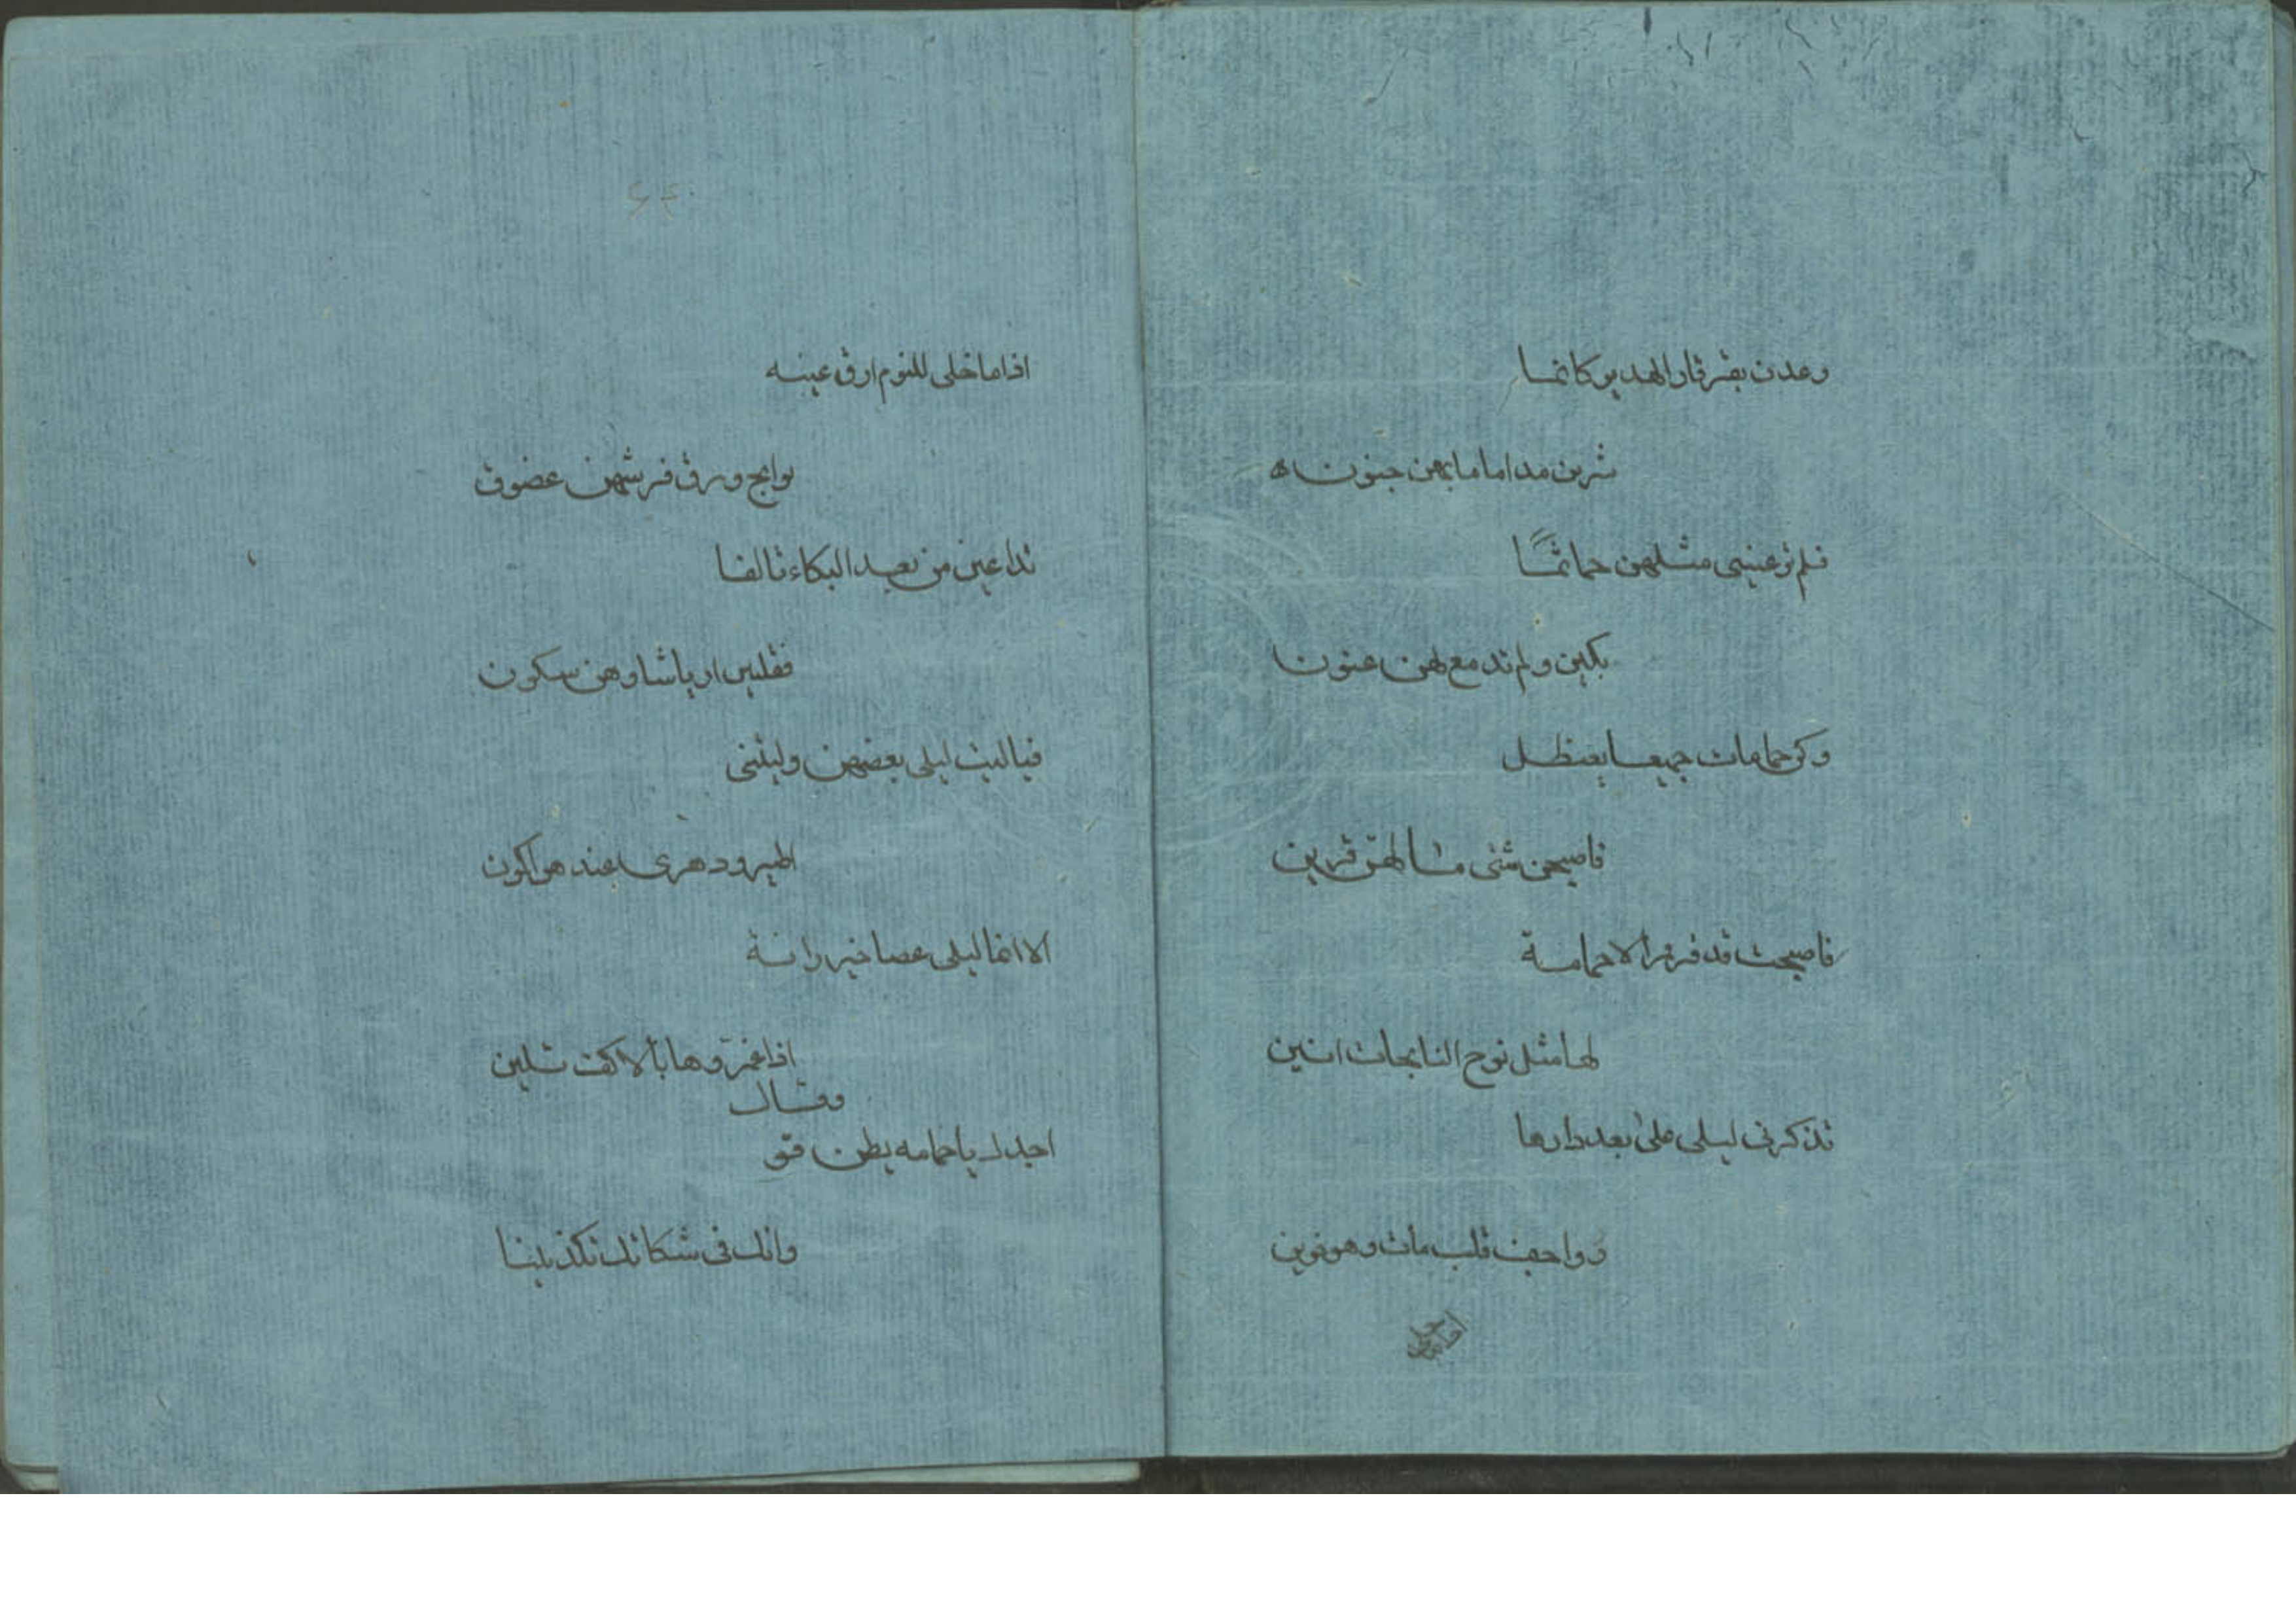 وعدن بقرقار الهدير كانما
شربن مداما ما بهن جنون
فلم تر عيني مثلهن حمائمًا
بكين ولم تدمع لهن عنونا
وكن حمامات جميعا بعنظل
فاصبحن شتى ما لهنّ قرين
فاصبحت قد قرقرن الا حمامة
لها مثل نوح النايحات انين
تذكرني ليلى على بعد دارها
رواجف قلب مات وهو
اذا ما خلى للنوم ارق عينه
نوايح ورق فرشهن غصون
تداعين من بعد البكاء تالفا
فقلبن ارياشا وهن سكون
فيا ليت ليلى بعضهن وليتني
اطير ودهرى عندهن اكون
الا انما ليلى عصا خيزرانة
اذا غمزوها بالاكف تلين
وقال
اجدك يا حمامه بطن قو
وانك في شكاتك تكذبينا